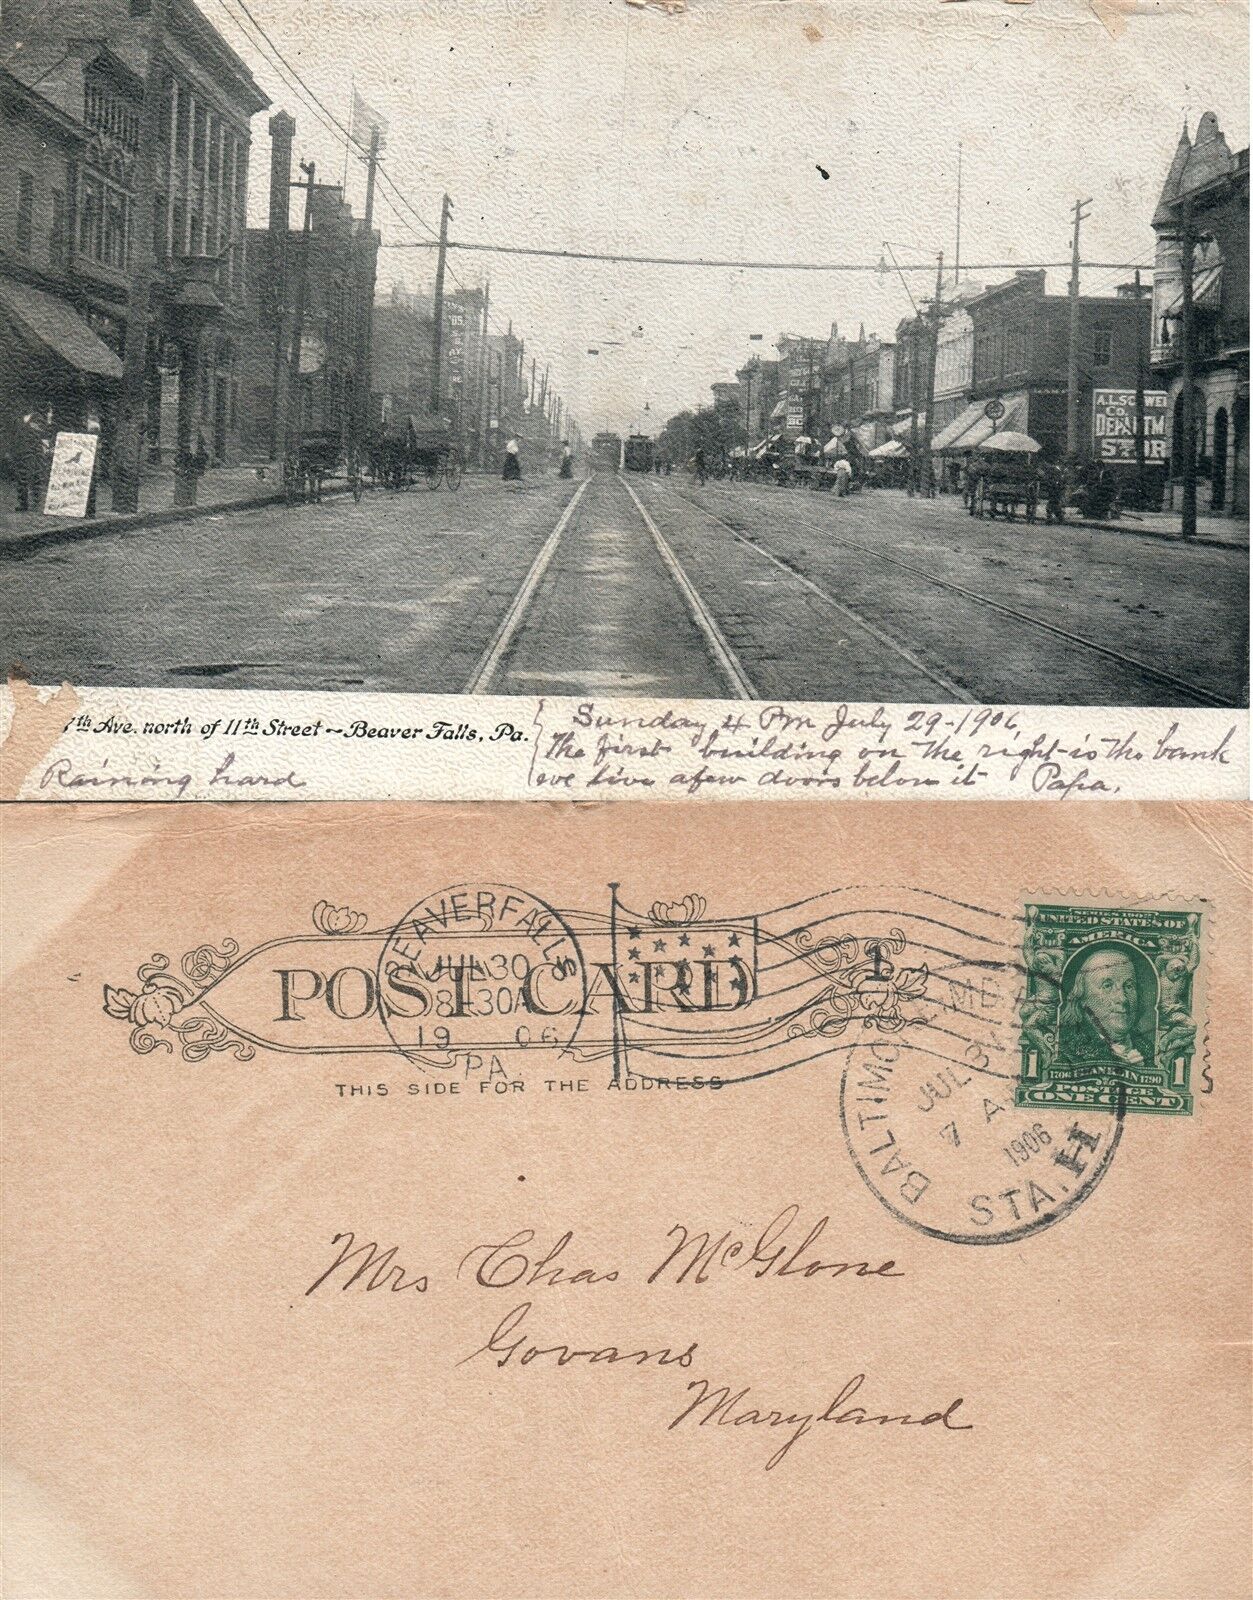 A.L.SC WEI
Co.
DEPARTM
STOR
7th Ave. north of 11th Street - Beaver Falls, Pa.
Sunday 4 Pm July 29-1906,
The first building on the right is the bank
we live a few doors below it Papa.
Raining hard
POST CARD
THIS SIDE FOR THE ADDRESS
BEAVER FALLS
JUL 30
8-30A
1906
PA.
1
BALTIMORE, MD.
JUL 31
7 A
1906
STA. H
UNITED STATES OF
AMERICA
1706 FRANKLIN 1790
1 POSTAGE 1
ONE CENT
Mrs Chas McGlone
Govans
Maryland